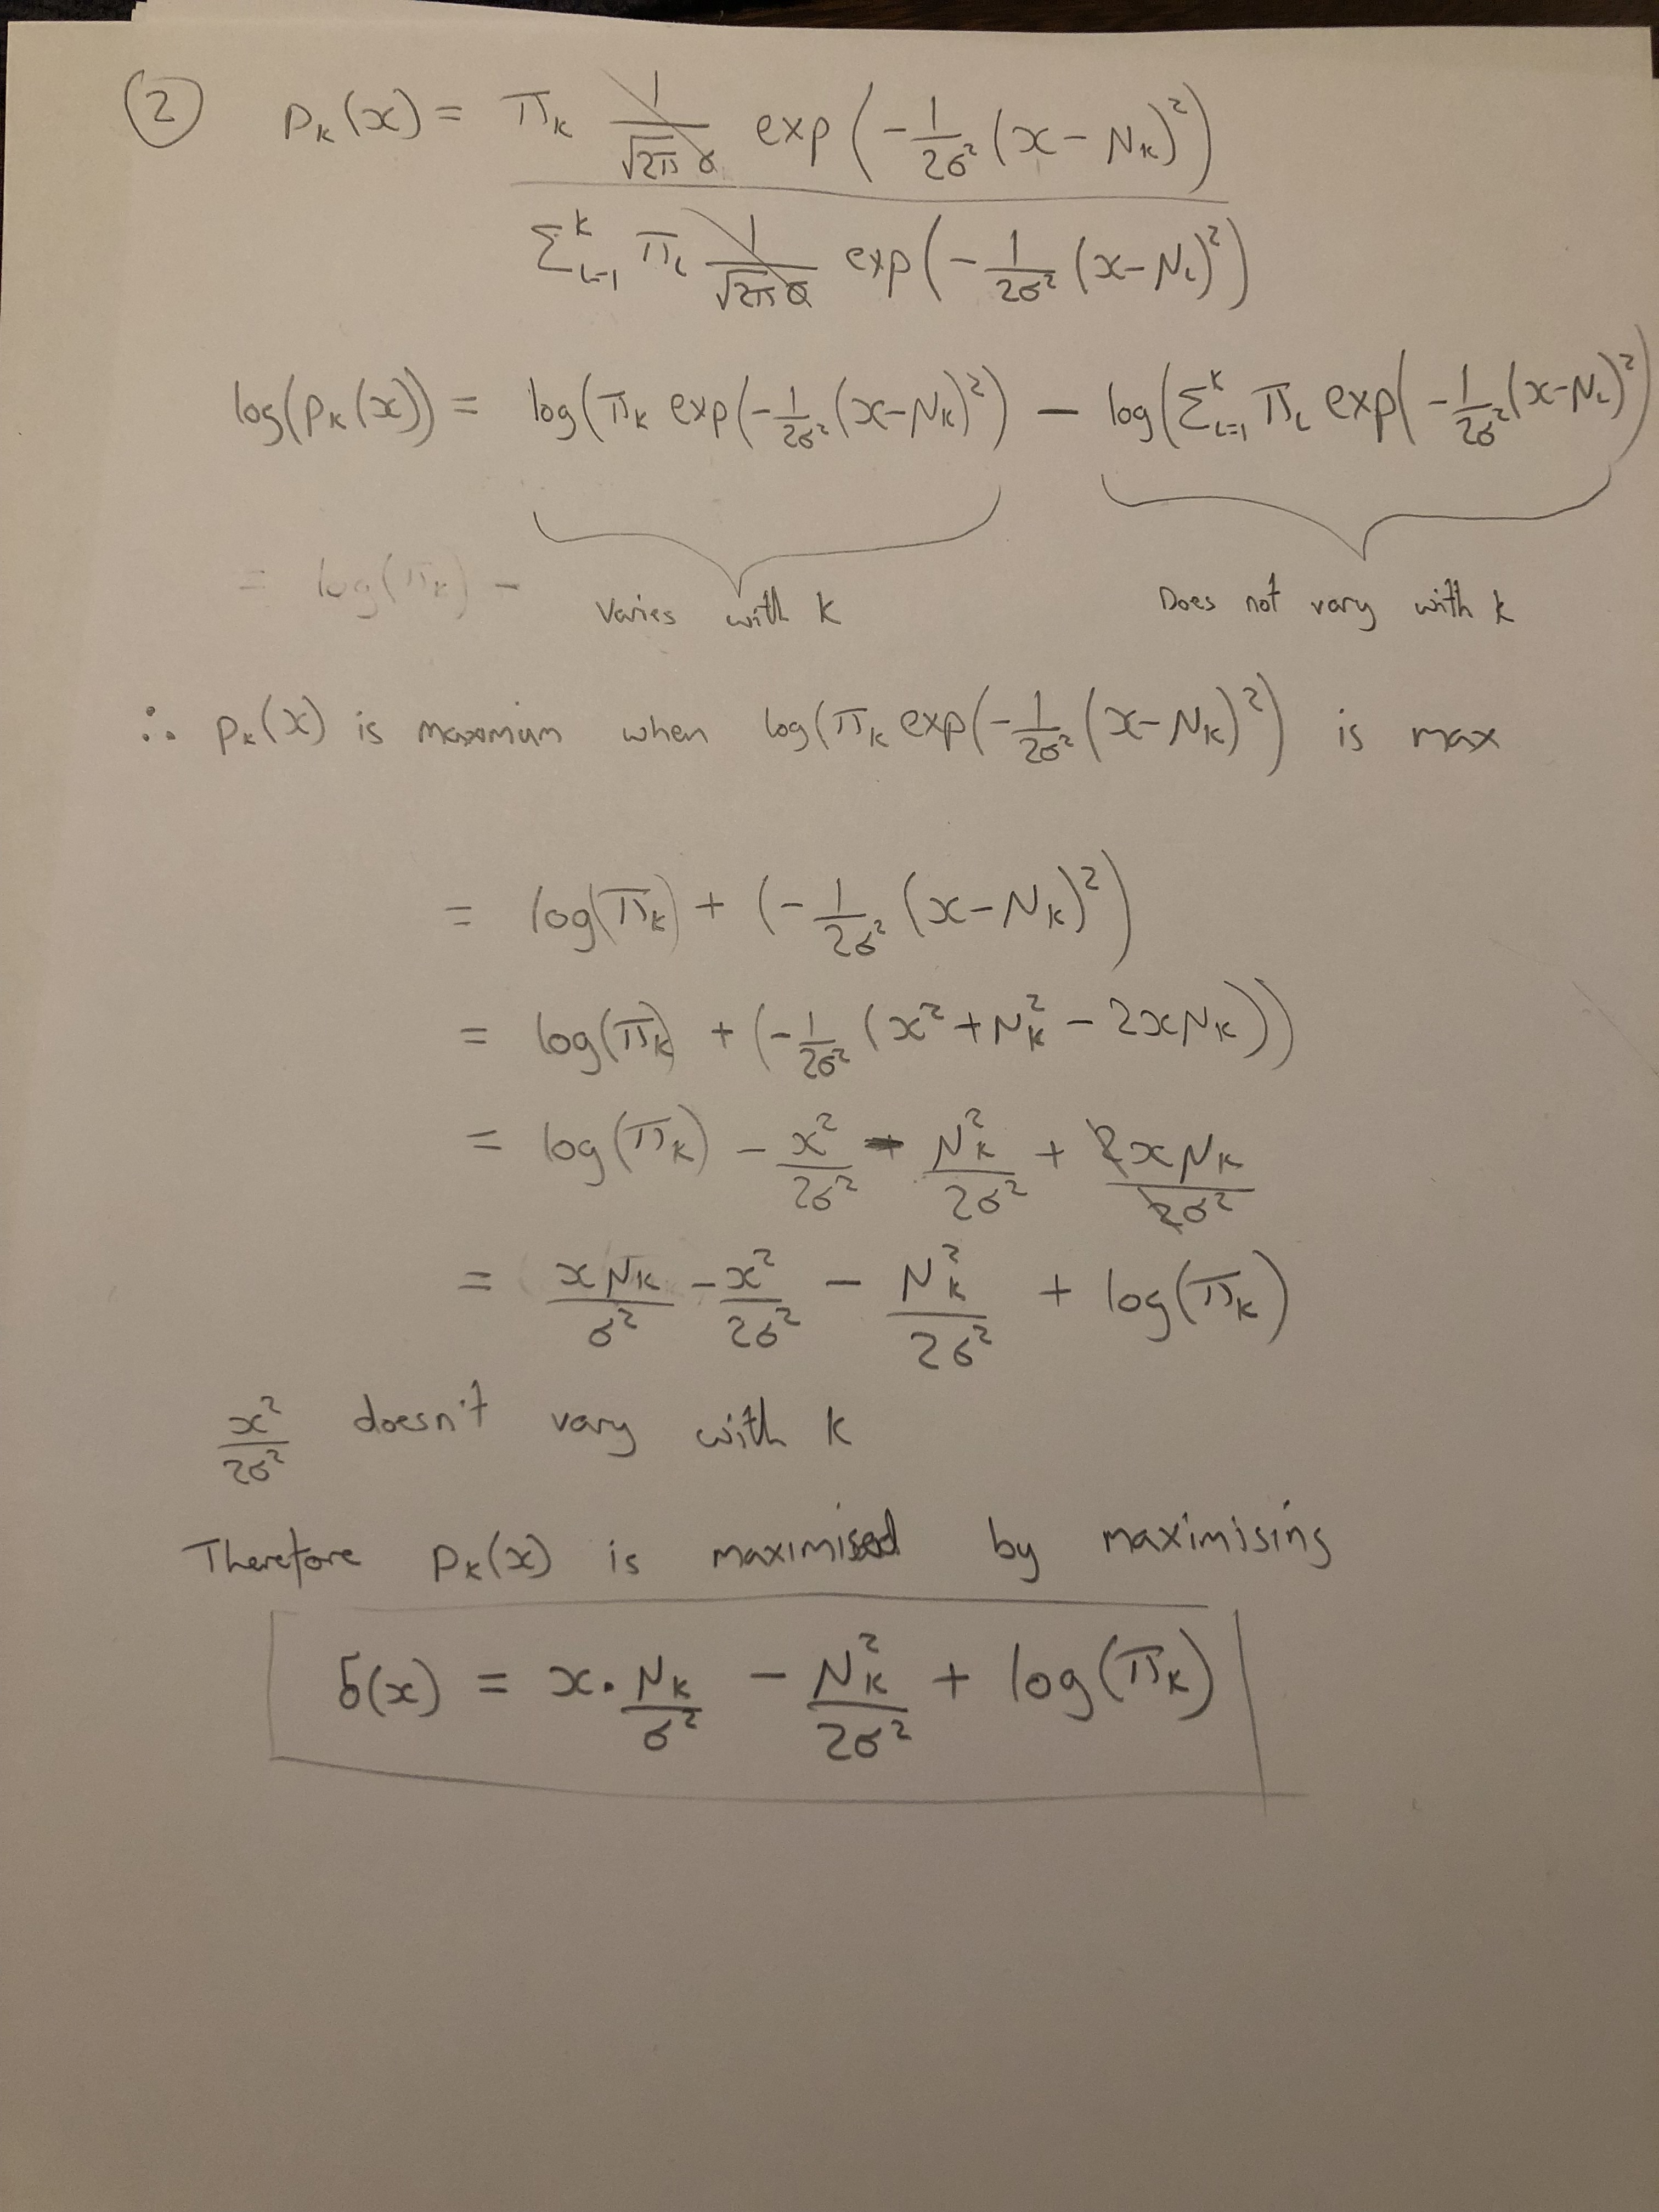 ② pₖ(x) = πₖ 1/(√2π σ) exp(-1/2σ² (x-μₖ)²)
Σᴷₗ₌₁ πₗ 1/(√2π σ) exp(-1/2σ² (x-μₗ)²)
log(pₖ(x)) = log(πₖ exp(-1/2σ² (x-μₖ)²) - log(Σᴷₗ₌₁ πₗ exp(-1/2σ² (x-μₗ)²)
= log(πₖ) -
Varies with k Does not vary with k
∴ pₖ(x) is maximum when log(πₖ exp(-1/2σ² (x-μₖ)²) is max
= log(πₖ) + (-1/2σ² (x-μₖ)²)
= log(πₖ) + (-1/2σ² (x² + μₖ² - 2xμₖ))
= log(πₖ) - x²/2σ² - μₖ²/2σ² + 2xμₖ/2σ²
= xμₖ/σ² - x²/2σ² - μₖ²/2σ² + log(πₖ)
x²/2σ² doesn't vary with k
Therefore pₖ(x) is maximised by maximising
δ(x) = x · μₖ/σ² - μₖ²/2σ² + log(πₖ)